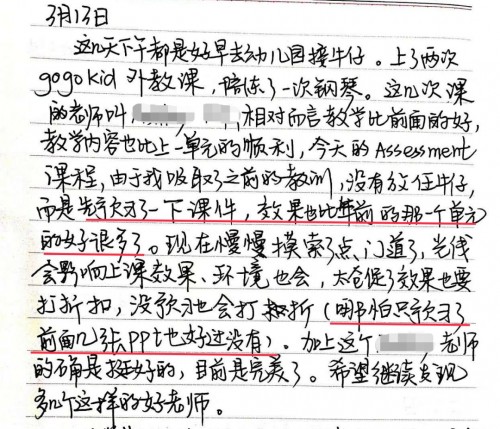 3月13日
这几天下午都是好早去幼儿园接牛仔。上了两次
gogokid 外教课，陪练了一次钢琴。这几次课
的老师叫 ，相对而言教学比前面的好，
教学内容也比上一单元的顺利，今天的Assessment
课程，由于我吸取了之前的教训，没有放任牛仔，
而是先预习了一下课件，效果也比之前的那一个单元
的好很多了。现在慢慢摸索了点门道了，光线
会影响上课效果、环境也会，太仓促了效果也要
打折扣，没预习也会打扣折（哪怕只预习了
前面几张PPt也好过没有）。加上这个 老师
的确是挺好的，目前是完美了。希望继续发现
多几个这样的好老师。